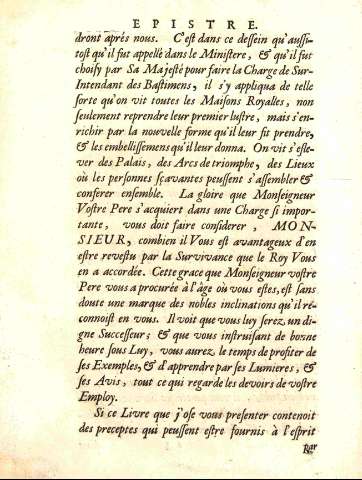 EPISTRE.
dront aprés nous. C'est dans ce dessein qu'aussi-
tost qu'il fut appellé dans le Ministere, & qu'il fut
choisy par Sa Majesté pour faire la Charge de Sur-
Intendant des Bastimens, il s'y appliqua de telle
sorte qu'on vit toutes les Maisons Royalles, non
seulement reprendre leur premier lustre, mais s'en-
richir par la nouvelle forme qu'il leur fit prendre,
& les embellissemens qu'il leur donna. On vit s'esle-
ver des Palais, des Arcs de triomphe, des Lieux
où les personnes sçavantes peussent s'assembler &
conferer ensemble. La gloire que Monseigneur
Vostre Pere s'acquiert dans une Charge si impor-
tante, vous doit faire considerer, MON-
SIEUR, combien il Vous est avantageux d'en
estre revestu par la Survivance que le Roy Vous
en a accordée. Cette grace que Monseigneur vostre
Pere vous a procurée à l'âge où vous estes, est sans
doute une marque des nobles inclinations qu'il re-
connoist en vous. Il voit que vous luy serez un di-
gne Successeur; & que vous instruisant de bonne
heure sous Luy, vous aurez le temps de profiter de
ses Exemples, & d'apprendre par ses Lumieres, &
ses Avis, tout ce qui regarde les devoirs de vostre
Employ.
Si ce Livre que j'ose vous presenter contenoit
des preceptes qui peussent estre fournis à l'esprit
par